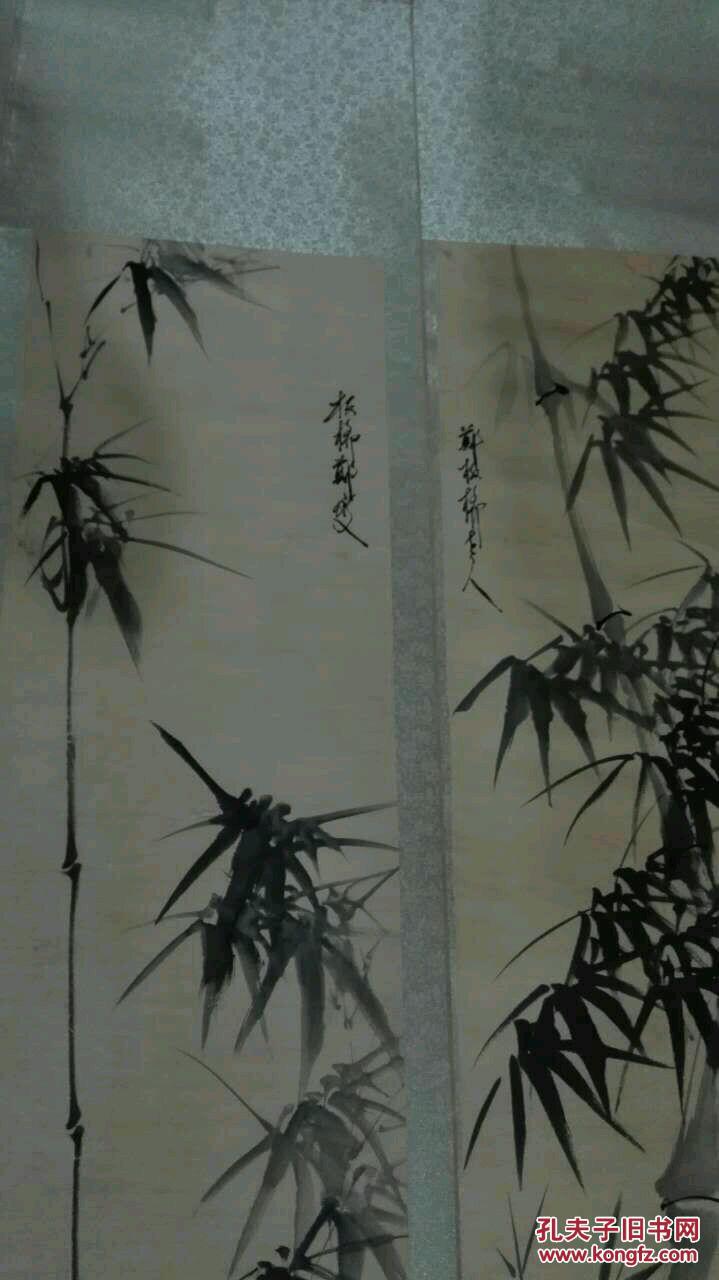 板橋鄭燮
鄭板橋老人
孔夫子旧书网
www.kongfz.com